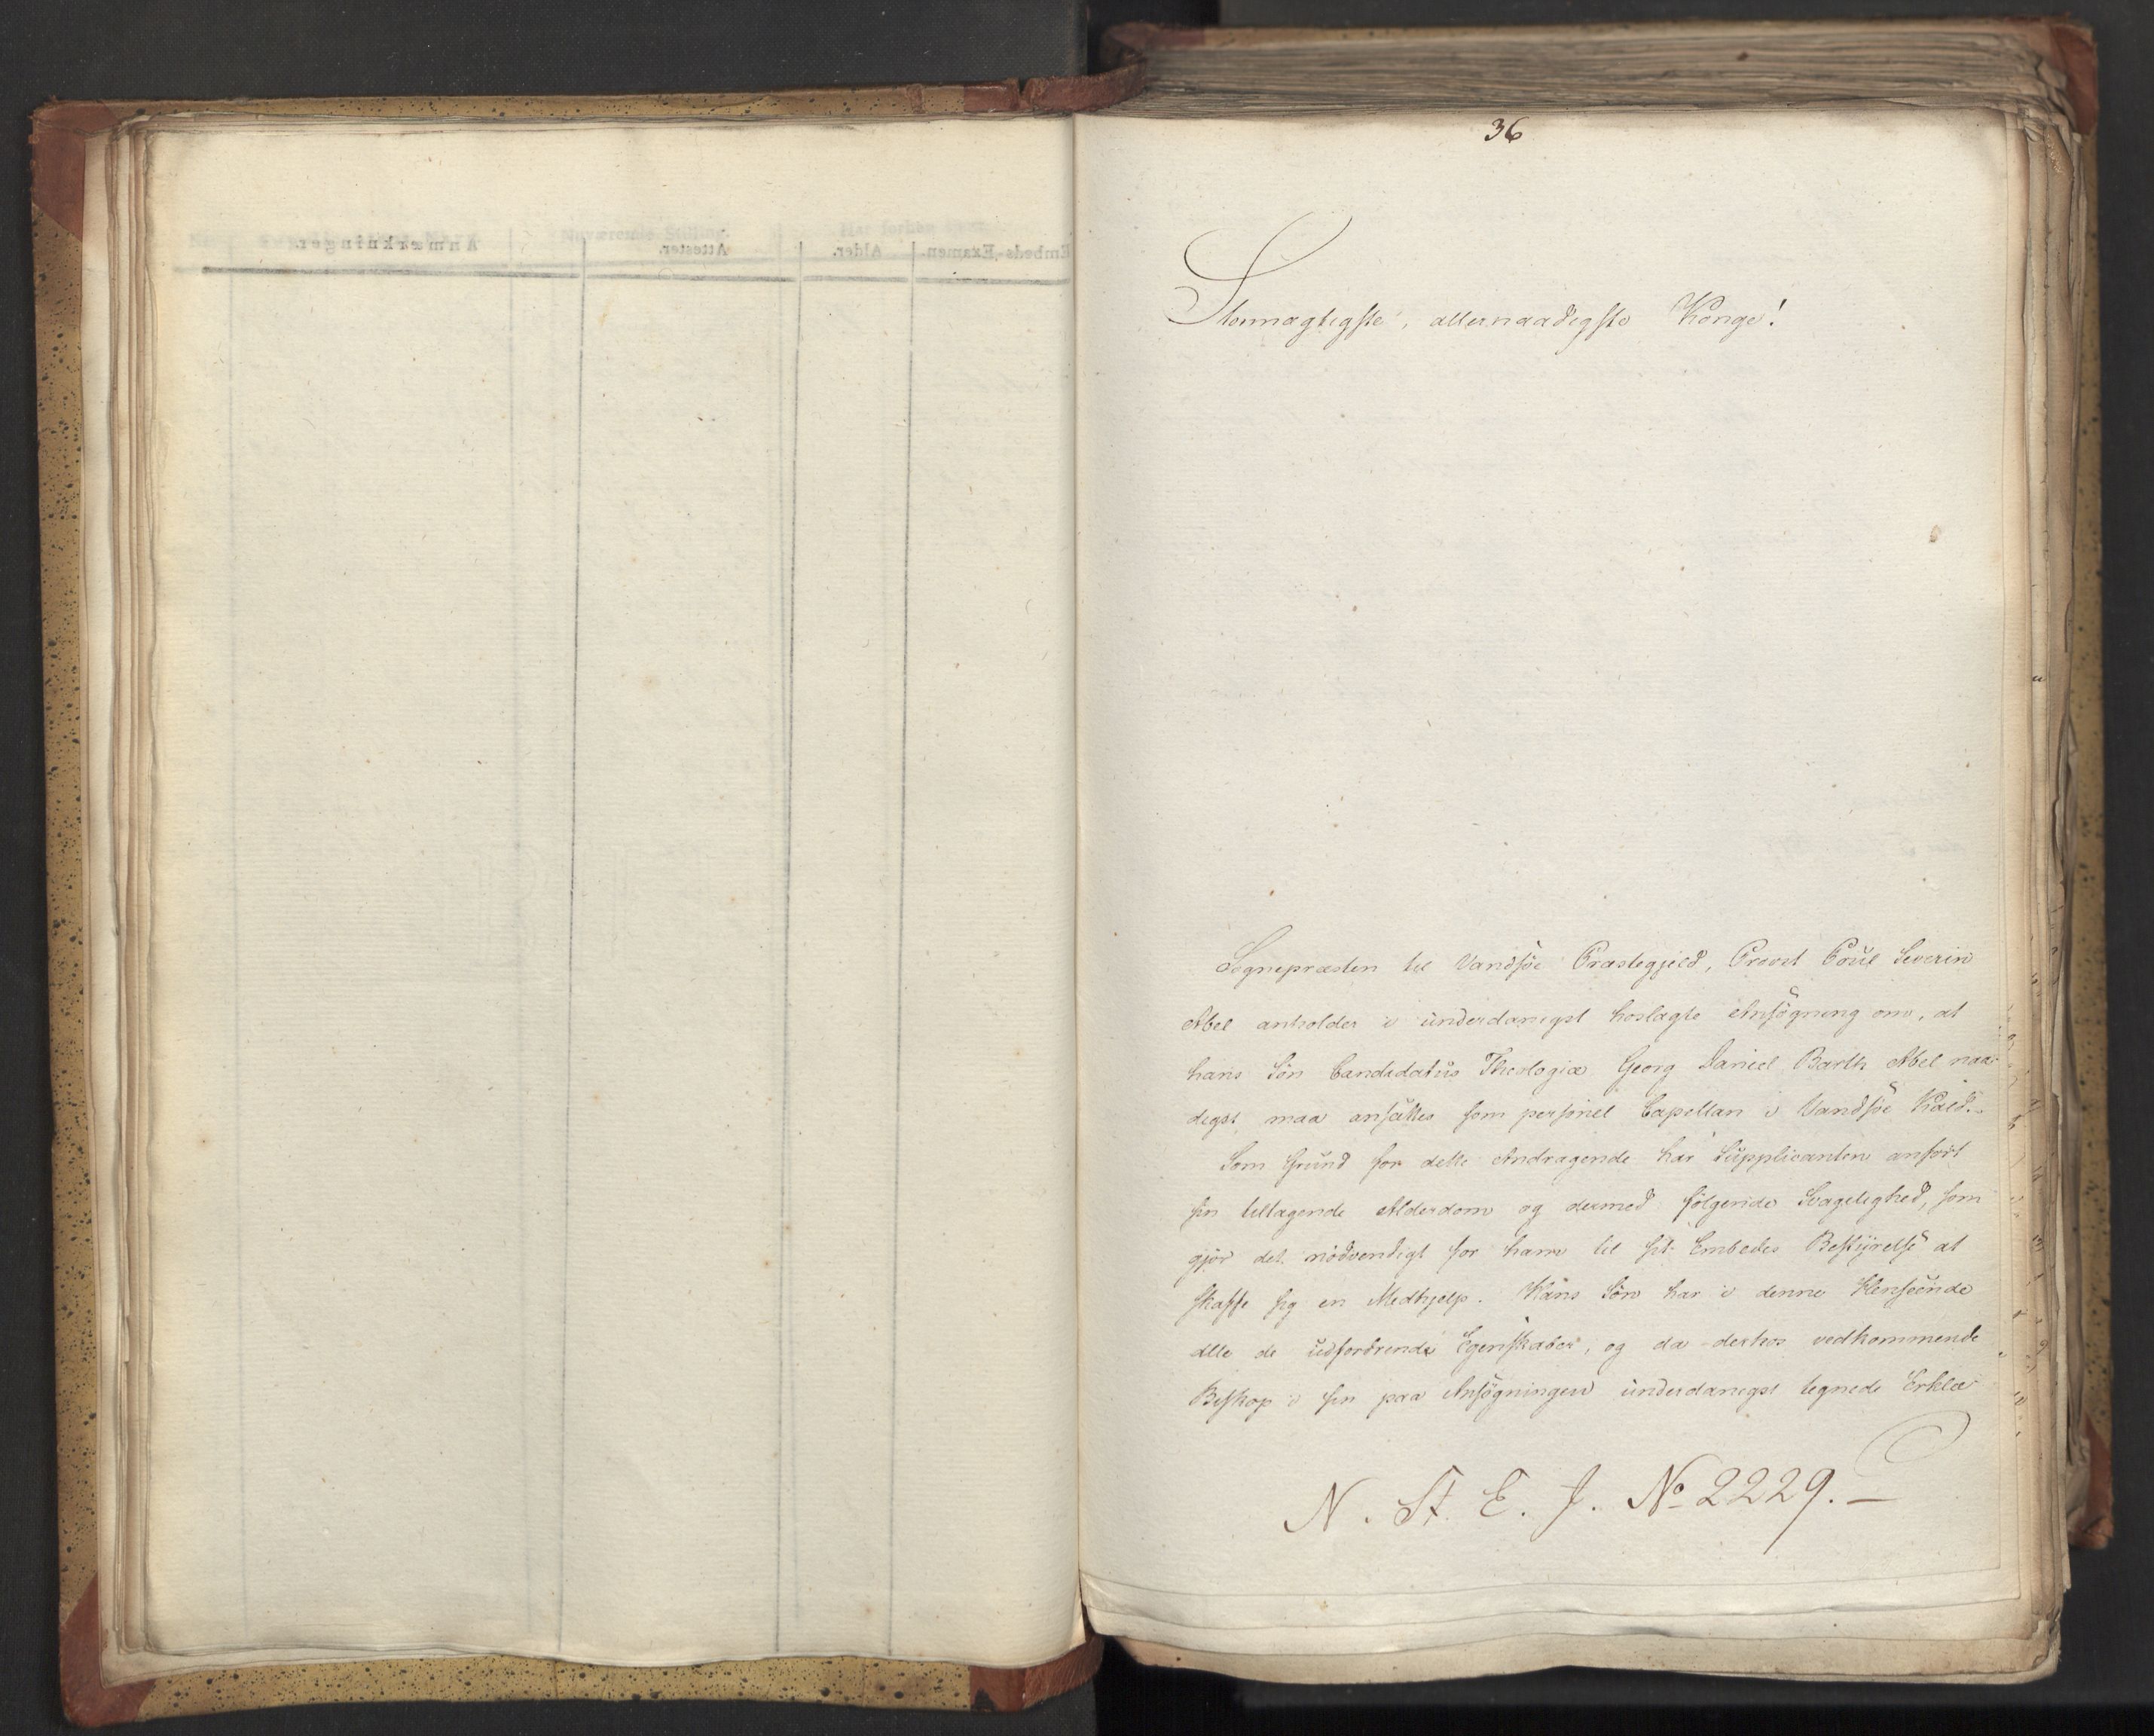 36
Stormægtigste, allernaadigste Konge!
Sognepræsten til Vandsøe Præstegjeld, Provst Poul Severin
Abel anholder i underdanigst hoslagte Ansøgning om, at
hans Søn Candidatus Theologiæ Georg Daniel Barth Abel naa-
digst maa ansættes som personel Capellan i Vandsøe Kald.-
Som Grund for dette Andragende har Supplicanten anført
sin tiltagende Alderdom og dermed følgende Svagelighed, som
gjør det nødvendigt for ham til sit Embedes Bestyrelse at
skaffe sig en Medhjelp. Hans Søn har i denne Henseende
alle de udfordrende Egenskaber, og da derhos vedkommende
Biskop i sin paa Ansøgningen underdanigst tegnede Erklæ-
N. St. E. J. No 2229.-
Anmærkninger.
Attester.
Alder.
Embeds-Examen.